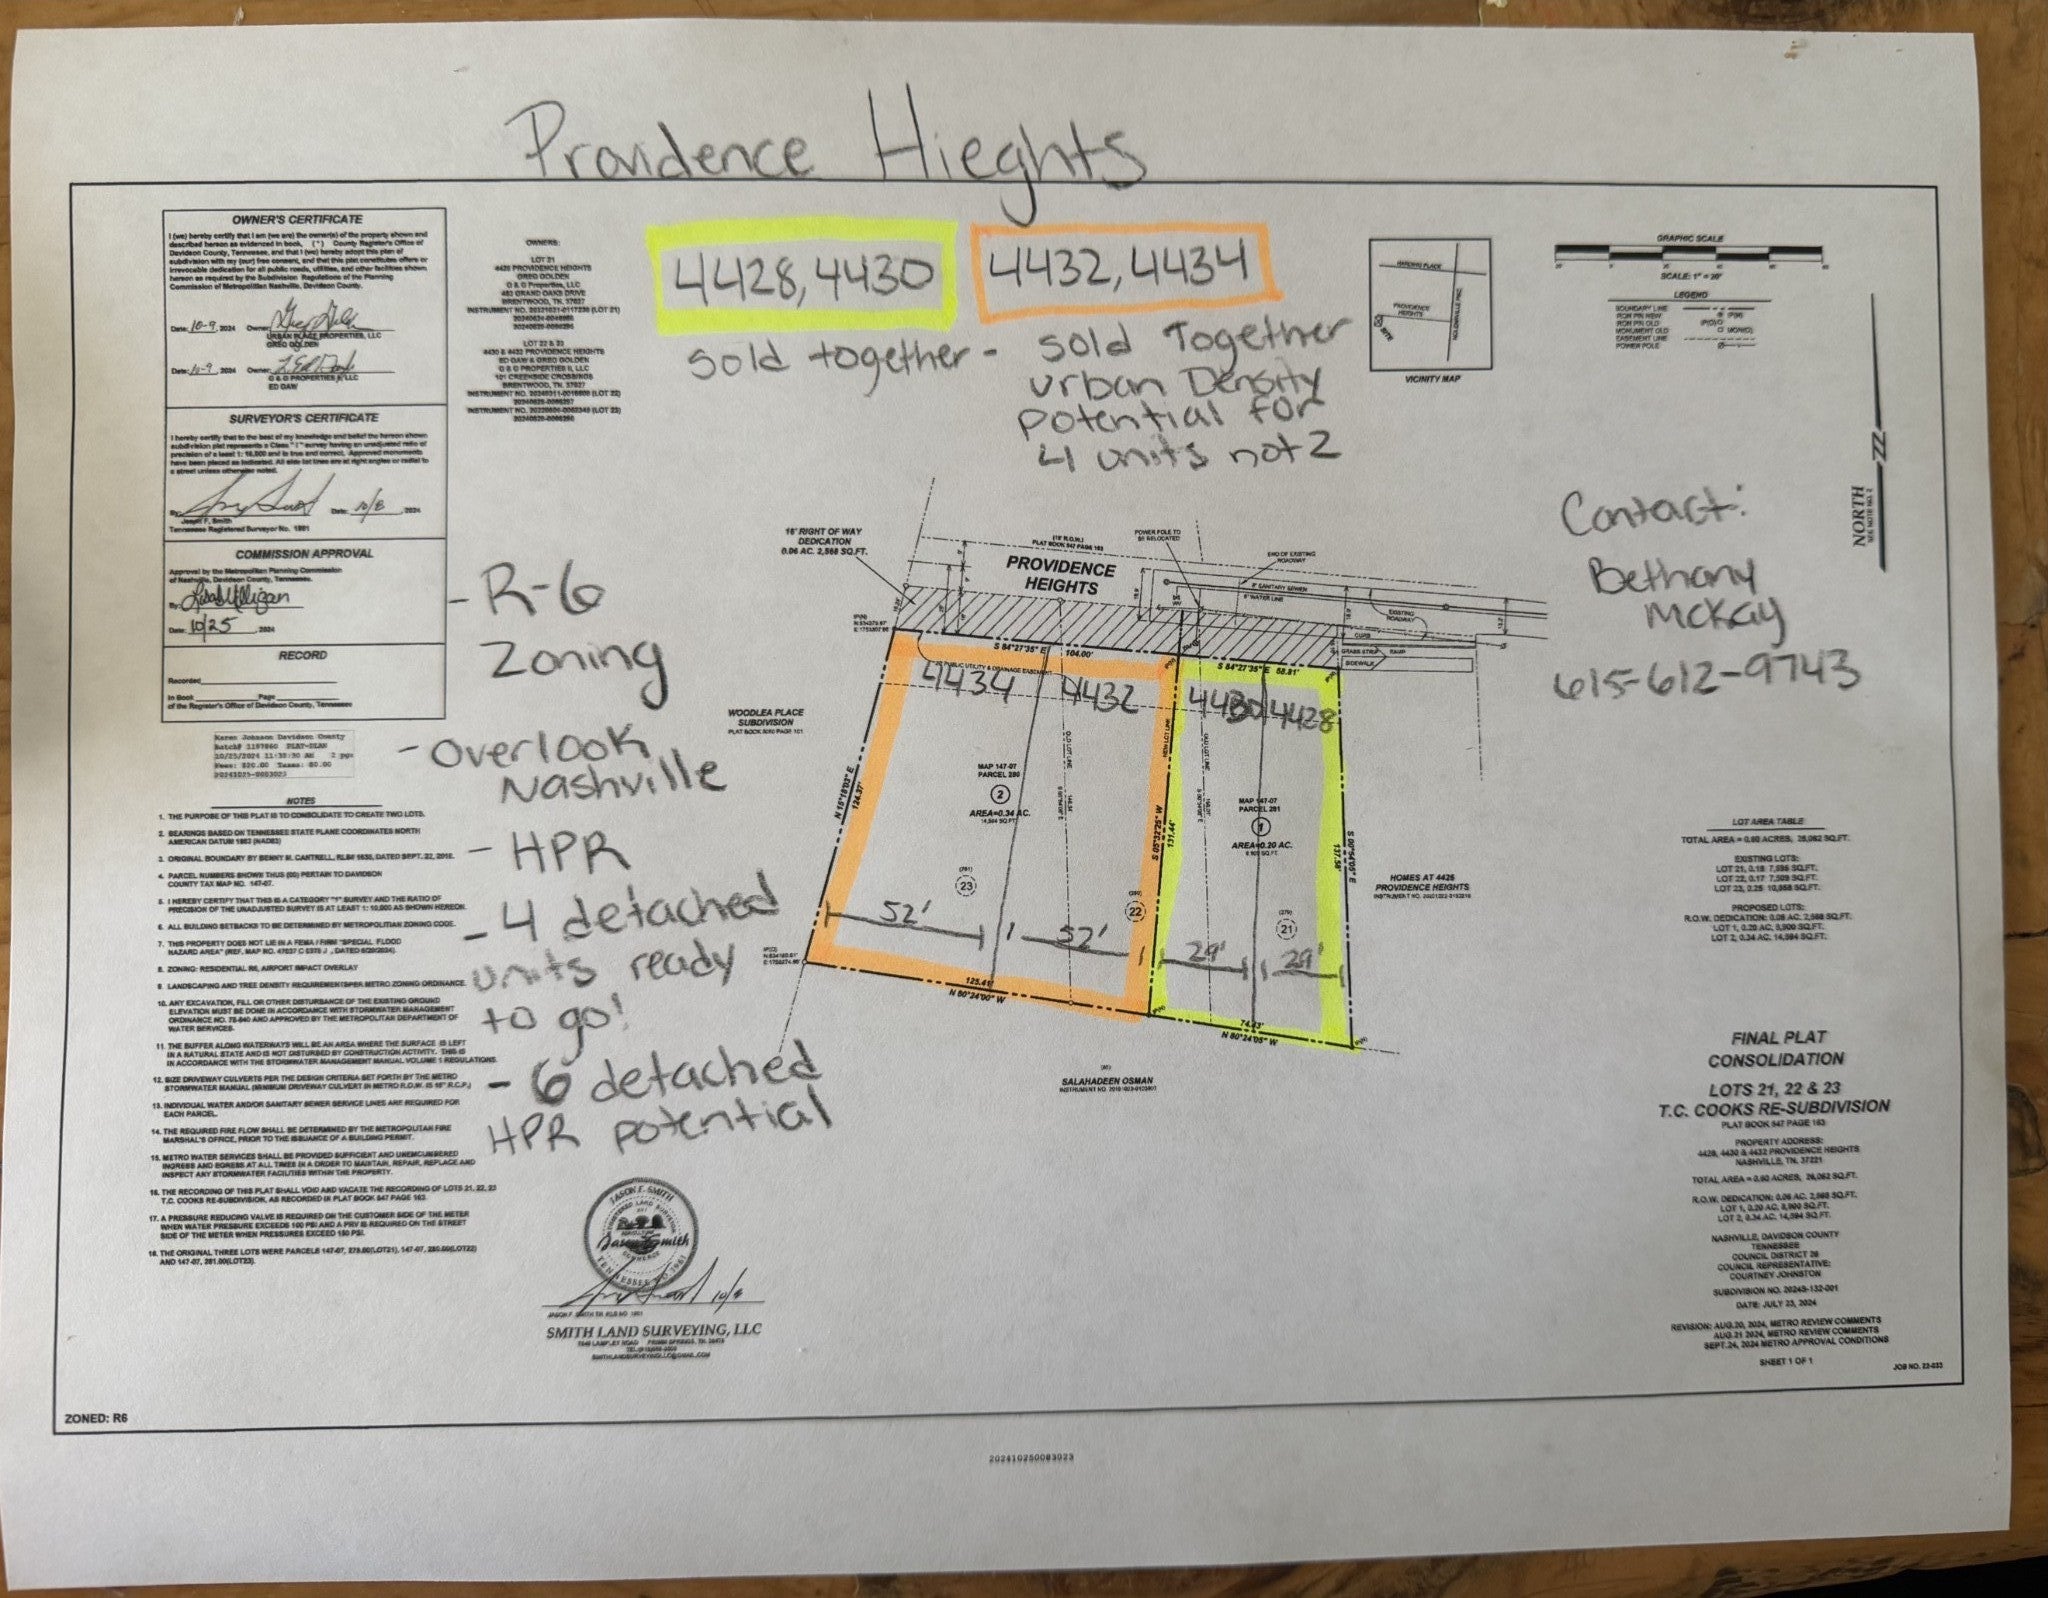 Providence Hieghts
4428, 4430
sold together -
4432, 4434
sold Together
urban Density
potential for
4 units not 2
Contact:
Bethany
McKay
615-612-9743
- R-6
Zoning
- Overlook
Nashville
- HPR
- 4 detached
units ready
to go!
- 6 detached
HPR potential
OWNER'S CERTIFICATE
I (we) hereby certify that I am (we are) the owner(s) of the property shown and
described hereon as evidenced in book, ( * ) County Register's Office of
Davidson County, Tennessee, and that I (we) hereby adopt this plan of
subdivision with my (our) free consent, and that this plat constitutes offers or
irrevocable dedication for all public roads, utilities, and other facilities shown
hereon as required by the Subdivision Regulations of the Planning
Commission of Metropolitan Nashville, Davidson County.
Date: 10-9, 2024 Owner:
URBAN PLACE PROPERTIES, LLC
GREG GOLDEN
Date: 10-9 2024 Owner:
ED GAW
SURVEYOR'S CERTIFICATE
I hereby certify that to the best of my knowledge and belief the hereon shown
subdivision plat represents a Class "1" survey having an unadjusted ratio of
precision of a least 1: 10,000 and is true and correct. Approved monuments
have been placed as indicated. All side lot lines are at right angles or radial to
a street unless otherwise noted.
By: Date: 10/8, 2024
Tennessee Registered Surveyor No.
COMMISSION APPROVAL
Approval by the Metropolitan Planning Commission
of Nashville, Davidson County, Tennessee.
By: Lisa Milligan
Date: 10/25, 2024
RECORD
Recorded
In Book Page
of the Register's Office of Davidson County, Tennessee
Karen Johnson Davidson County
Batch# 1197860 PLAT-PLAN
10/25/2024 11:35:30 AM 2 pgs
Fees: $20.00 Taxes: $0.00
20241025-0083023
NOTES
1. THE PURPOSE OF THIS PLAT IS TO CONSOLIDATE TO CREATE TWO LOTS.
2. BEARINGS BASED ON TENNESSEE STATE PLANE COORDINATES NORTH
AMERICAN DATUM 1983 (NAD83)
3. ORIGINAL BOUNDARY BY BENNY M. CANTRELL, RLS# 1635, DATED SEPT. 22, 2016.
4. PARCEL NUMBERS SHOWN THUS (00) PERTAIN TO DAVIDSON
COUNTY TAX MAP NO. 147-07.
5. I HEREBY CERTIFY THAT THIS IS A CATEGORY "1" SURVEY AND THE RATIO OF
PRECISION OF THE UNADJUSTED SURVEY IS AT LEAST 1: 10,000 AS SHOWN HEREON.
6. ALL BUILDING SETBACKS TO BE DETERMINED BY METROPOLITAN ZONING CODE.
7. THIS PROPERTY DOES NOT LIE IN A FEMA / FIRM "SPECIAL FLOOD
HAZARD AREA"
8. ZONING: RESIDENTIAL R6, AIRPORT IMPACT OVERLAY
9. LANDSCAPING AND TREE DENSITY REQUIREMENTS PER METRO ZONING ORDINANCE.
10. ANY EXCAVATION, FILL OR OTHER DISTURBANCE OF THE EXISTING GROUND
ELEVATION MUST BE DONE IN ACCORDANCE WITH STORMWATER MANAGEMENT
ORDINANCE NO. 78-840 AND APPROVED BY THE METROPOLITAN DEPARTMENT OF
WATER SERVICES.
11. THE BUFFER ALONG WATERWAYS WILL BE AN AREA WHERE THE SURFACE IS LEFT
IN A NATURAL STATE AND IS NOT DISTURBED BY CONSTRUCTION ACTIVITY. THIS IS
IN ACCORDANCE WITH THE STORMWATER MANAGEMENT MANUAL VOLUME 1 REGULATIONS.
12. SIZE DRIVEWAY CULVERTS PER THE DESIGN CRITERIA SET FORTH BY THE METRO
STORMWATER MANUAL (MINIMUM DRIVEWAY CULVERT IN METRO R.O.W. IS 15" R.C.P.)
13. INDIVIDUAL WATER AND/OR SANITARY SEWER SERVICE LINES ARE REQUIRED FOR
EACH PARCEL.
14. THE REQUIRED FIRE FLOW SHALL BE DETERMINED BY THE METROPOLITAN FIRE
MARSHAL'S OFFICE, PRIOR TO THE ISSUANCE OF A BUILDING PERMIT.
15. METRO WATER SERVICES SHALL BE PROVIDED SUFFICIENT AND UNENCUMBERED
INGRESS AND EGRESS AT ALL TIMES IN A ORDER TO MAINTAIN, REPAIR, REPLACE AND
INSPECT ANY STORMWATER FACILITIES WITHIN THE PROPERTY.
16. THE RECORDING OF THIS PLAT SHALL VOID AND VACATE THE RECORDING OF LOTS 21, 22, 23
T.C. COOKS RE-SUBDIVISION, AS RECORDED IN PLAT BOOK 547 PAGE 163.
17. A PRESSURE REDUCING VALVE IS REQUIRED ON THE CUSTOMER SIDE OF THE METER
WHEN WATER PRESSURE EXCEEDS 100 PSI AND A PRV IS REQUIRED ON THE STREET
SIDE OF THE METER WHEN PRESSURES EXCEED 150 PSI.
18. THE ORIGINAL THREE LOTS WERE PARCELS 147-07, 279.00(LOT21), 147-07, 280.00(LOT22)
AND 147-07, 281.00(LOT23).
OWNERS:
LOT 21
4428 PROVIDENCE HEIGHTS
GREG GOLDEN
G & G Properties, LLC
BRENTWOOD, TN. 37027
LOT 22 & 23
4430 & 4432 PROVIDENCE HEIGHTS
ED GAW & GREG GOLDEN
G & G PROPERTIES II, LLC
101 CREEKSIDE CROSSINGS
BRENTWOOD, TN. 37027
HARDING PLACE
PROVIDENCE
HEIGHTS
SITE
VICINITY MAP
GRAPHIC SCALE
SCALE: 1" = 20'
LEGEND
BOUNDARY LINE
IRON PIN NEW
IRON PIN OLD
MONUMENT OLD
EASEMENT LINE
POWER POLE
NORTH
SEE NOTE NO. 2
16' RIGHT OF WAY
DEDICATION
0.06 AC. 2,568 SQ.FT.
PLAT BOOK 547 PAGE 163
PROVIDENCE
HEIGHTS
POWER POLE TO
BE RELOCATED
END OF EXISTING
ROADWAY
8" SANITARY SEWER
6" WATER LINE
EXISTING
ROADWAY
CURB
GRASS STRIP RAMP
SIDEWALK
S 84°27'35" E 104.00'
PUBLIC UTILITY & DRAINAGE EASEMENT
S 84°27'35" E 68.81'
4434 4432 4430 4428
WOODLEA PLACE
SUBDIVISION
N 15°18'03" E
124.37'
MAP 147-07
PARCEL 280
2
AREA=0.34 AC.
14,594 SQ.FT.
OLD LOT LINE
S 05°32'25" W
131.44'
NEW LOT LINE
OLD LOT LINE
MAP 147-07
PARCEL 281
1
AREA=0.20 AC.
8,900 SQ.FT.
S 00°54'05" E
137.58'
23
22
21
52' 52' 29' 29'
125.41'
N 80°24'00" W
74.43'
N 80°24'05" W
HOMES AT 4426
PROVIDENCE HEIGHTS
SALAHADEEN OSMAN
LOT AREA TABLE
TOTAL AREA = 0.60 ACRES, 26,062 SQ.FT.
EXISTING LOTS:
LOT 21, 0.18 7,595 SQ.FT.
LOT 22, 0.17 7,509 SQ.FT.
LOT 23, 0.25 10,958 SQ.FT.
PROPOSED LOTS:
R.O.W. DEDICATION: 0.06 AC. 2,568 SQ.FT.
LOT 1, 0.20 AC. 8,900 SQ.FT.
LOT 2, 0.34 AC. 14,594 SQ.FT.
FINAL PLAT
CONSOLIDATION
LOTS 21, 22 & 23
T.C. COOKS RE-SUBDIVISION
PLAT BOOK 547 PAGE 163
PROPERTY ADDRESS:
4428, 4430 & 4432 PROVIDENCE HEIGHTS
NASHVILLE, TN. 37221
TOTAL AREA = 0.60 ACRES, 26,062 SQ.FT.
R.O.W. DEDICATION: 0.06 AC. 2,568 SQ.FT.
LOT 1, 0.20 AC. 8,900 SQ.FT.
LOT 2, 0.34 AC. 14,594 SQ.FT.
NASHVILLE, DAVIDSON COUNTY
TENNESSEE
COUNCIL DISTRICT 26
COUNCIL REPRESENTATIVE:
COURTNEY JOHNSTON
SUBDIVISION NO. 2024S-132-001
DATE: JULY 23, 2024
REVISION: AUG.20, 2024, METRO REVIEW COMMENTS
AUG.21 2024, METRO REVIEW COMMENTS
SEPT.24, 2024 METRO APPROVAL CONDITIONS
SHEET 1 OF 1
JOB NO. 22-033
JASON F. SMITH
10/8
SMITH LAND SURVEYING, LLC
ZONED: R6
202410250083023